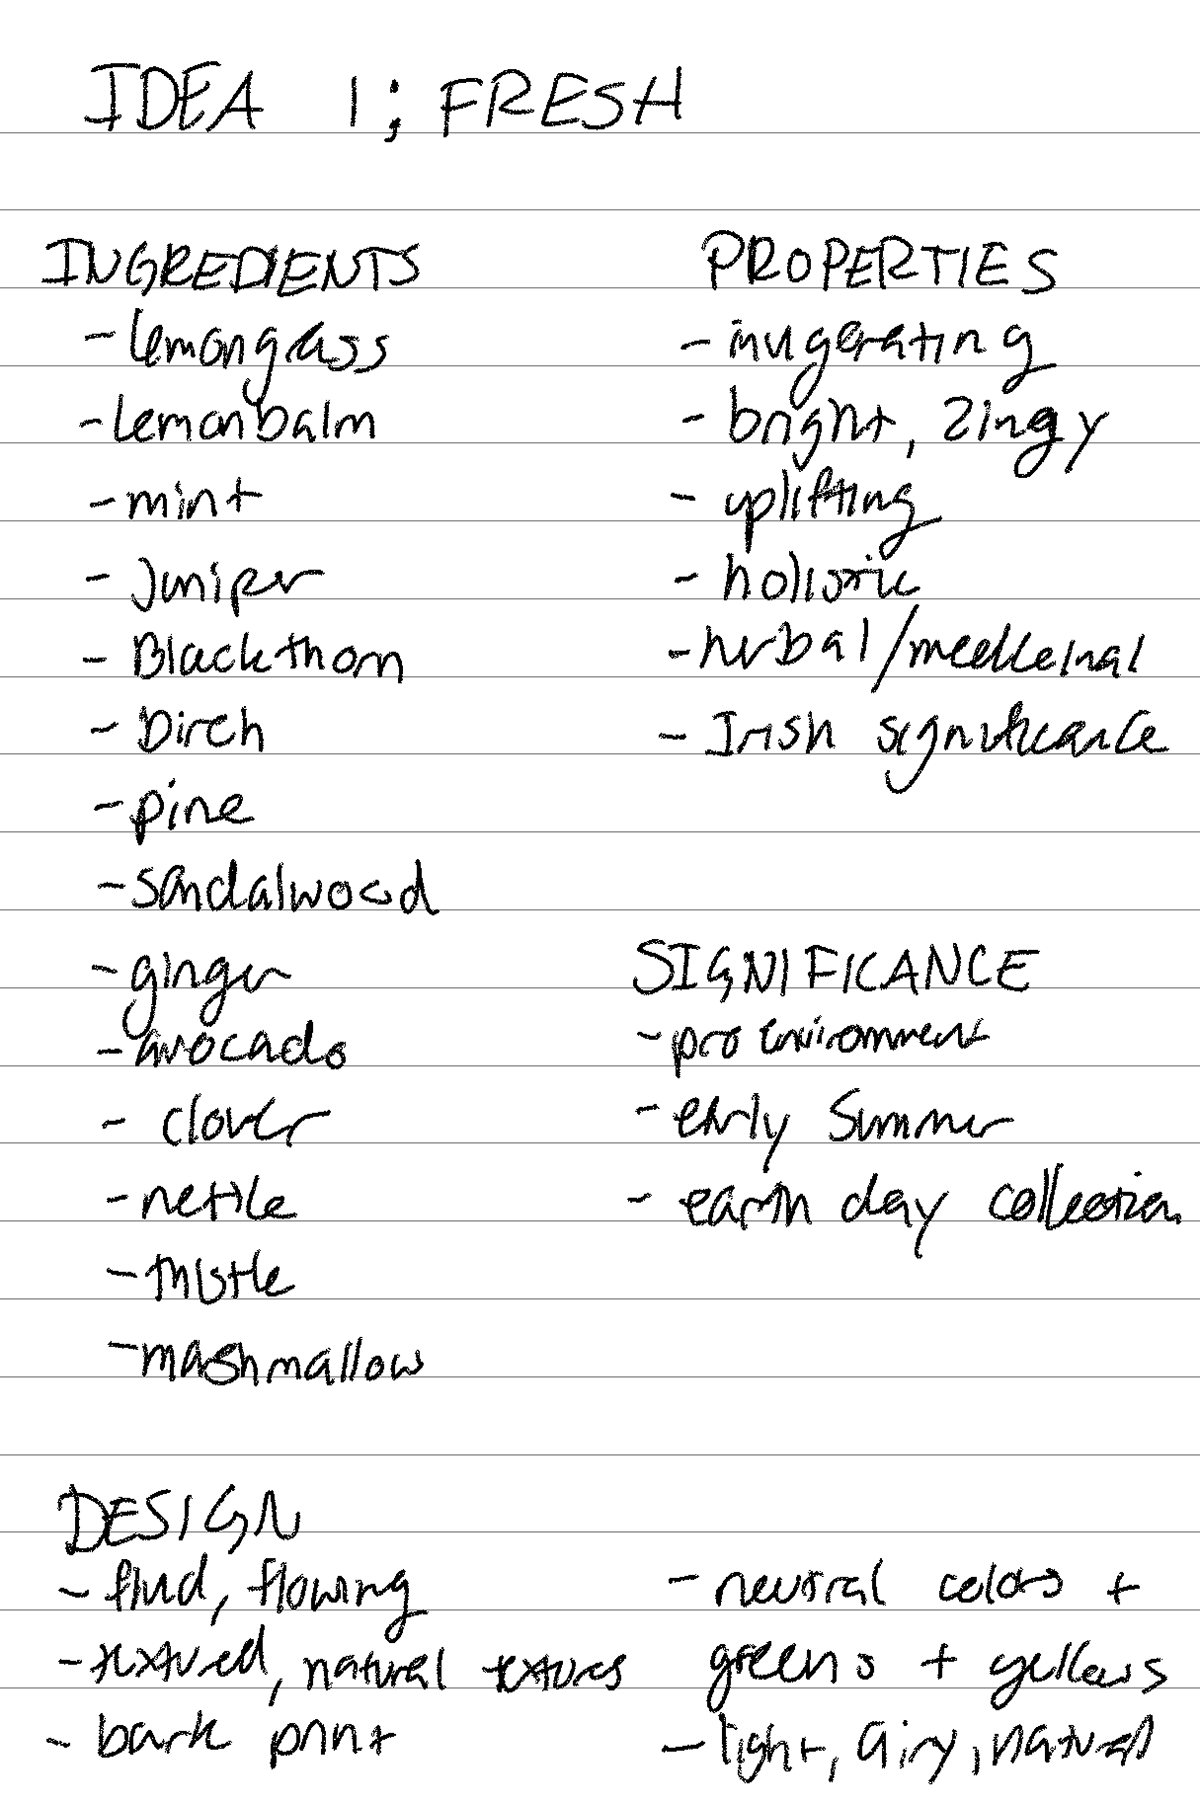 IDEA 1; FRESH
INGREDIENTS
- lemongrass
- lemonbalm
- mint
- Juniper
- Blackthorn
- Birch
- pine
- sandalwood
- ginger
- avocado
- clover
- nettle
- thistle
- mashmallow
PROPERTIES
- invigerating
- bright, zingy
- uplifting
- holistic
- herbal/medicinal
- Irish significance
SIGNIFICANCE
- pro environment
- early Summer
- earth day collection
DESIGN
- fluid, flowing
- textured, natural textures
- bark print
- neutral colors +
greens + yellows
- light, airy, natural